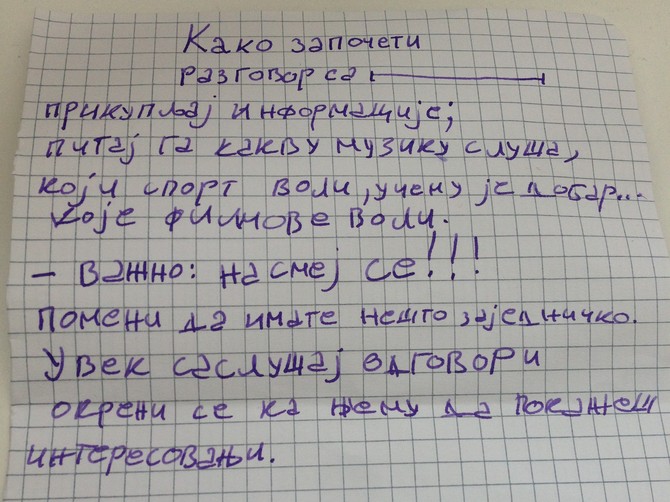 Како започети
разговор са
прикупљај информације;
питај га какву музику слуша,
који спорт воли, у чему је добар...
које филмове воли.
- Важно: насмеј се!!!
помени да имате нешто заједничко.
Увек саслушај одговори
окрени се ка њему да покажеш
интересовањи.